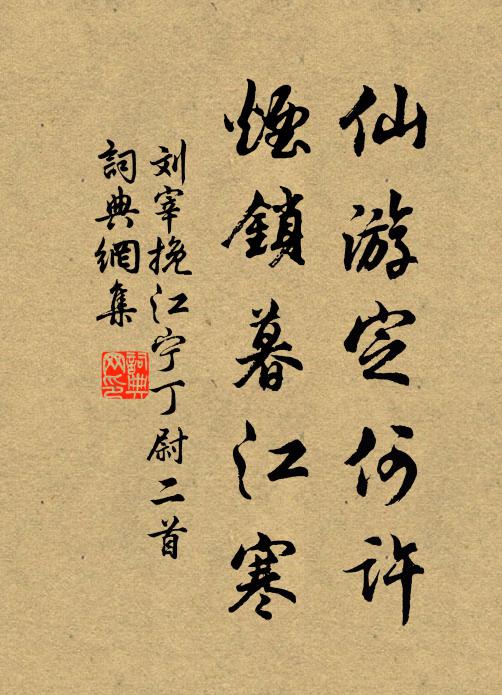 仙游定何许
煙鎖暮江寒
刘宰挽江宁丁尉二首
詞典網集